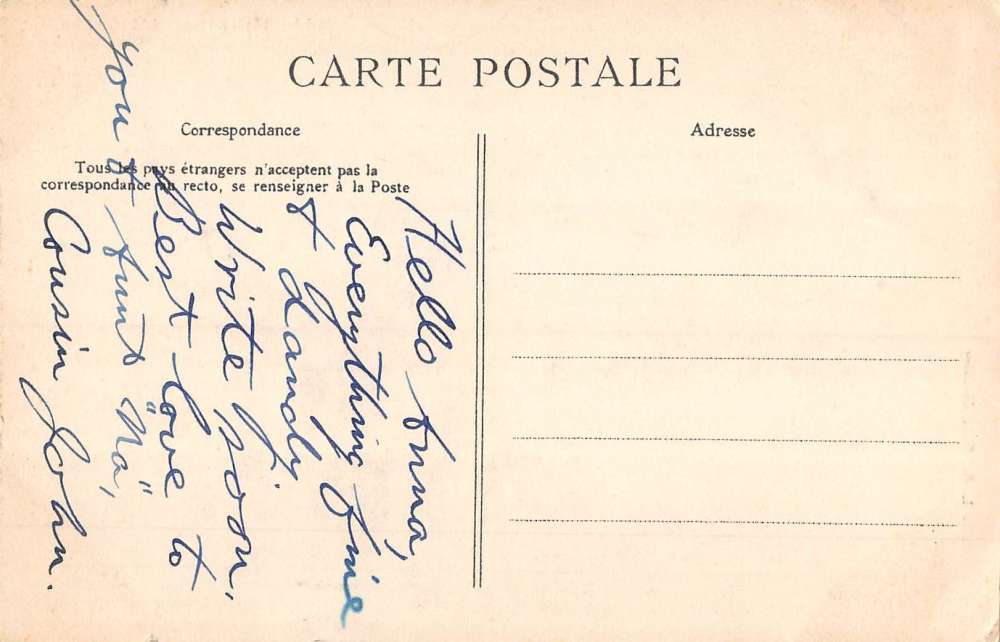 CARTE POSTALE
Correspondance
Adresse
Tous les pays étrangers n'acceptent pas la
correspondance au recto, se renseigner à la Poste
Hello Anna,
Everything fine
& dandy.
Write soon,
Best love to
you & Aunt "Na",
Cousin John.